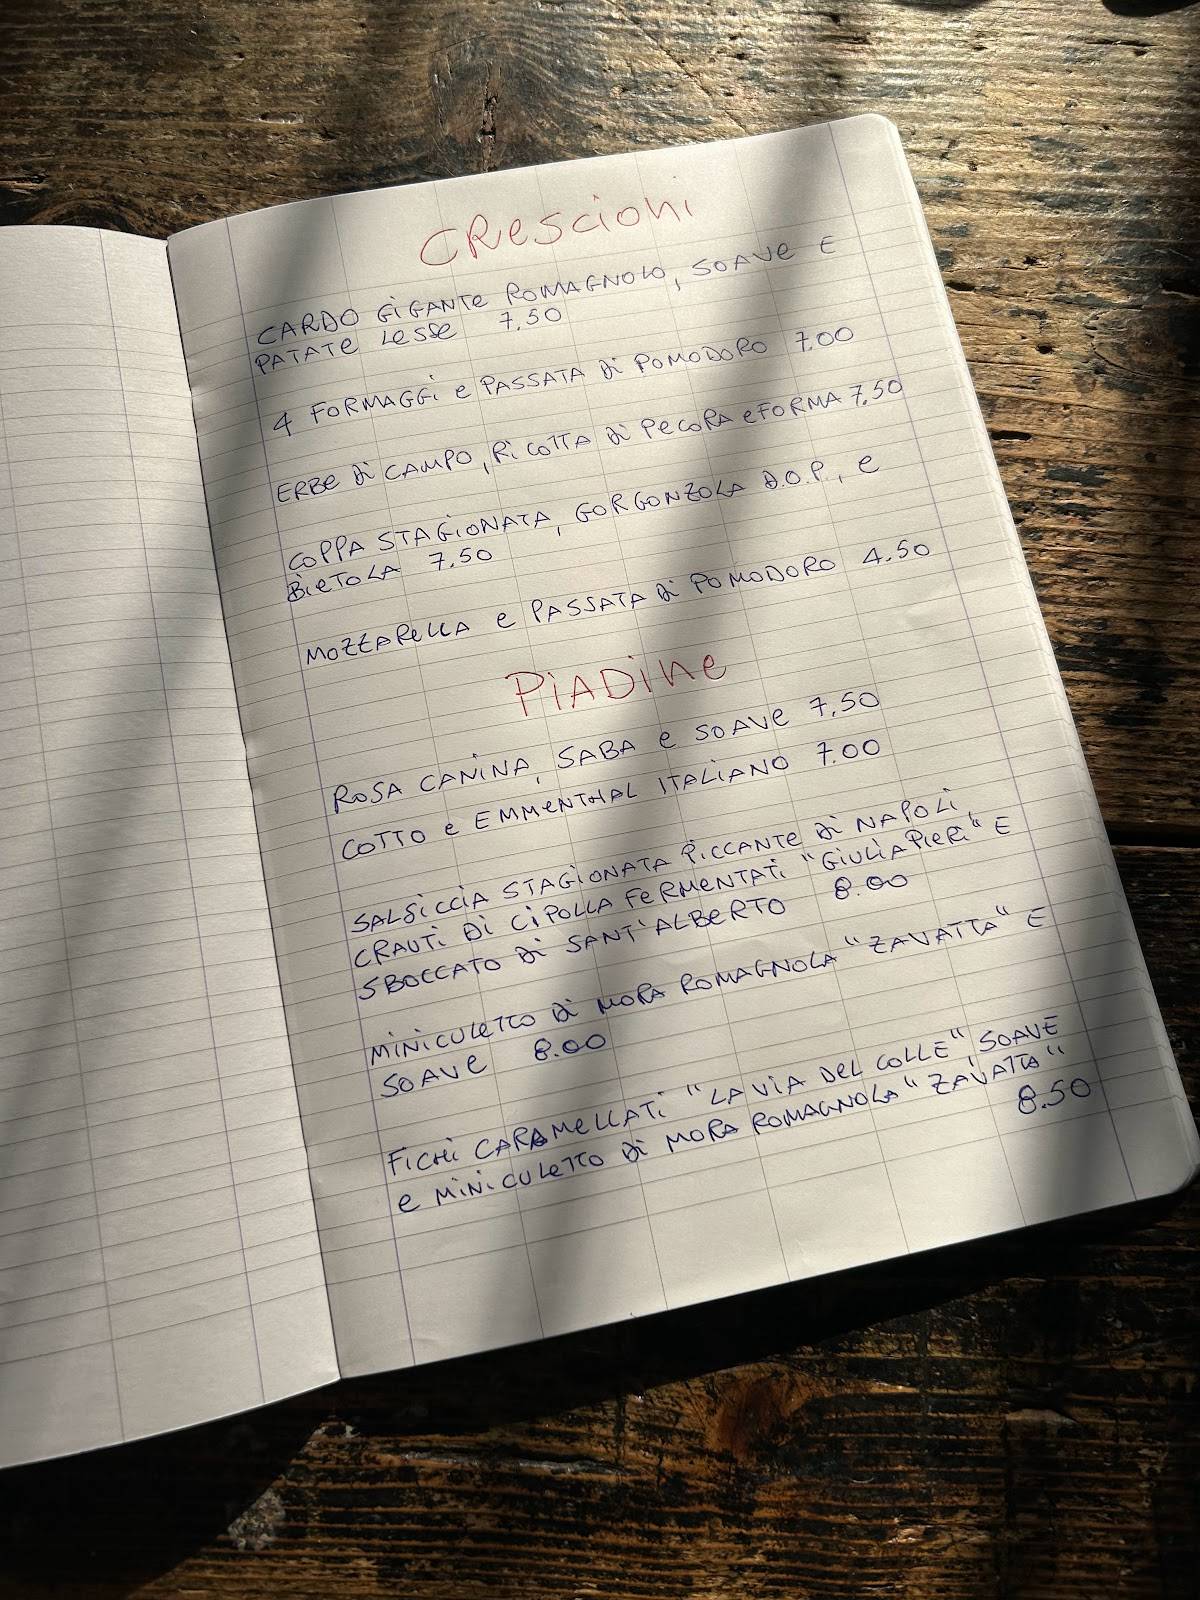 CRescioni
CARDO GIGANTE ROMAGNOLO, SOAVE E
PATATE LESSE 7,50
4 FORMAGGI e PASSATA DI POMODORO 7.00
ERBE DI CAMPO, RICOTTA DI PECORA e FORMA 7,50
COPPA STAGIONATA, GORGONZOLA D.O.P., e
BIETOLA 7.50
MOZZARELLA e PASSATA DI POMODORO 4.50
PIADINe
ROSA CANINA, SABA e SOAVE 7,50
COTTO e EMMENTHAL ITALIANO 7.00
SALSICCIA STAGIONATA PICCANTE DI NAPOLI,
CRAUTI DI CIPOLLA FERMENTATI "GIULIA PIERI" E
SBOCCATO DI SANT'ALBERTO 8.00
MINICULETTO DI MORA ROMAGNOLA "ZAVATTA" E
SOAVE 8.00
FICHI CARAMELLATI "LA VIA DEL COLLE", SOAVE
e MINICULETTO DI MORA ROMAGNOLA "ZAVATTA"
8.50